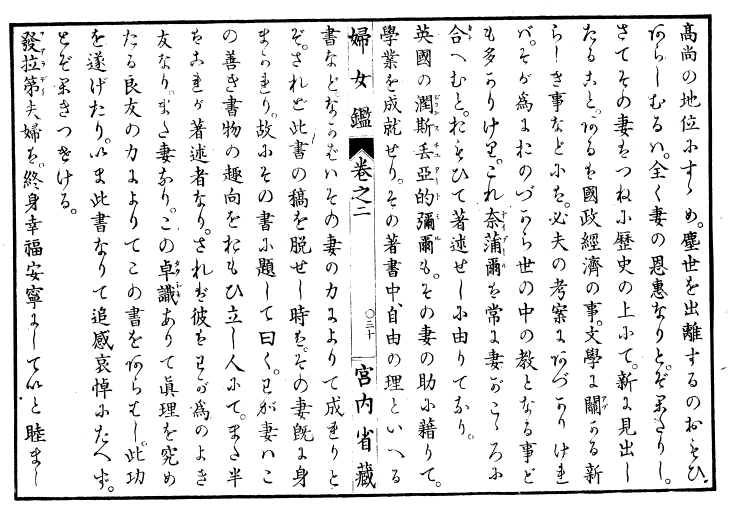 高尚の地位にすゝめ。塵世を出離するのおもひ
あらしむるハ。全く妻の恩惠なりと。ぞ果たりし。
さてその妻をつねに歷史の上にて。新に見出し
たること。あるを國政經濟の事。文學に關かる新
らしき事などにを。必夫の考案にあづかりけれ
バ。そが爲におのづから世の中の教となる事ど
も多かりけり。これ奈蒲爾を常に妻がこゝろに
合へむと。おもひて著述せしに由りてなり。
英國の潤斯丢亞的彌爾も。その妻の助に藉りて。
學業を成就せり。その著書中、自由の理といへる
婦女鑑 卷之二 〇三十 宮内省藏
書などならむいその妻の力によりて成れりと
ぞ。されど此書の稿を脱せし時を。その妻旣に身
まかれり。故にその書に題して曰く。わが妻ハこ
の善き書物の趣向をおもひ立し人にて。また半
をこれが著述者なり。されば彼をわが爲のよき
友なり。また妻なり。この卓識ありて眞理を究め
たる良友の力によりてこの書をあらむし。此功
を遂げたり。いま此書なりて追感哀悼にたへず。
とぞ果きつけける。
發拉第夫婦を。終身幸福安寧にしていと睦まし